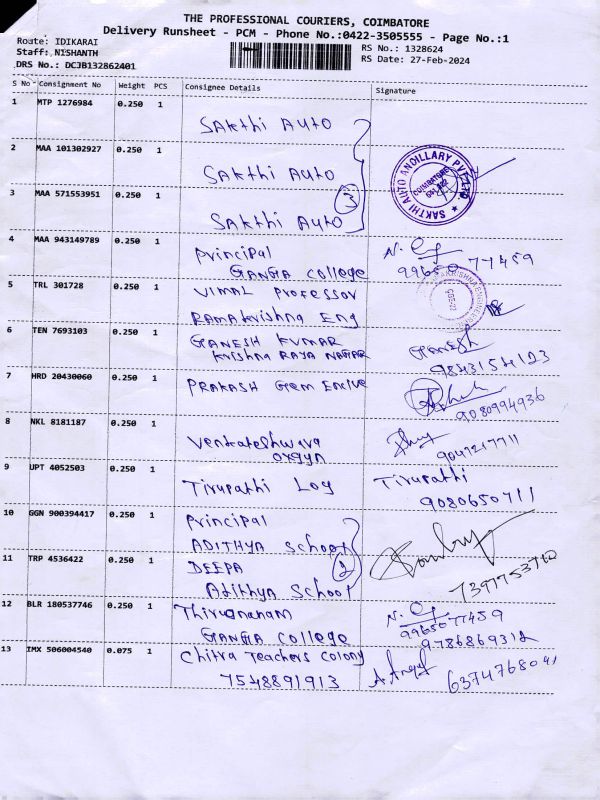 THE PROFESSIONAL COURIERS, COIMBATORE
Delivery Runsheet - PCM - Phone No.:0422-3505555 - Page No.:1
Route: IDIKARAI
RS No.: 1328624
Staff: NISHANTH
RS Date: 27-Feb-2024
DRS No.: DCJB132862401
S No - Consignment No Weight PCS Consignee Details Signature
1 MTP 1276984 0.250 1
SAKthi AUTO
2 MAA 101302927 0.250 1
SAKthi AUTO
SAKTHI AUTO ANCILLARY PVT LTD
COIMBATORE
3 MAA 571553951 0.250 1
3
SAKthi AUTO
4 MAA 943149789 0.250 1
Principal
GANGA College 99650 77459
5 TRL 301728 0.250 1
VIMAL Professor
RAMAKrishna Eng
6 TEN 7693103 0.250 1
GANESH KUMAR GANESH
Krishna RAYA NAGAR 9843154123
7 HRD 20430060 0.250 1
PRAKASH Gem Enclve
9080994936
8 NKL 8181187 0.250 1
Venkateshwara 9047217711
9 UPT 4052503 0.250 1
Tirupathi Log Tirupathi
9080650711
10 GGN 900394417 0.250 1
Principal
ADITHYA School
11 TRP 4536422 0.250 1
DEEPA 2
Adithya School
12 BLR 180537746 0.250 1
Thirugnanam 99650 77459
GANGA College 9786869312
13 IMX 506004540 0.075 1
Chitra Teachers Colony
7548891913 6374768041